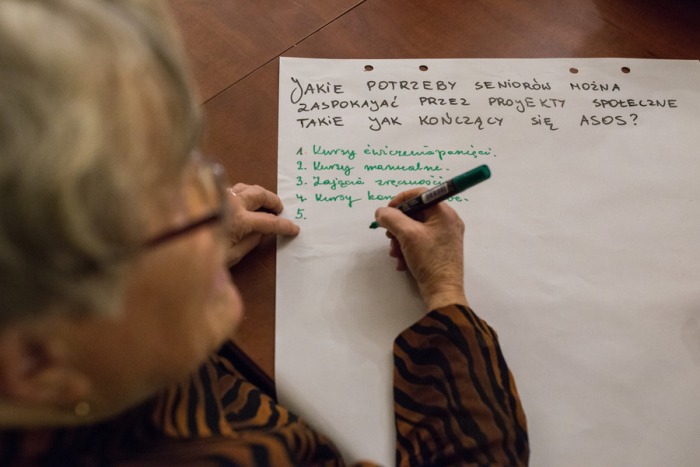 JAKIE POTRZEBY SENIORÓW MOŻNA
ZASPOKAJAĆ PRZEZ PROJEKTY SPOŁECZNE
TAKIE JAK KOŃCZĄCY SIĘ ASOS?
1. Kursy ćwiczenia pamięci.
2. Kursy manualne.
3. Zajęcia
4. Kursy
5.